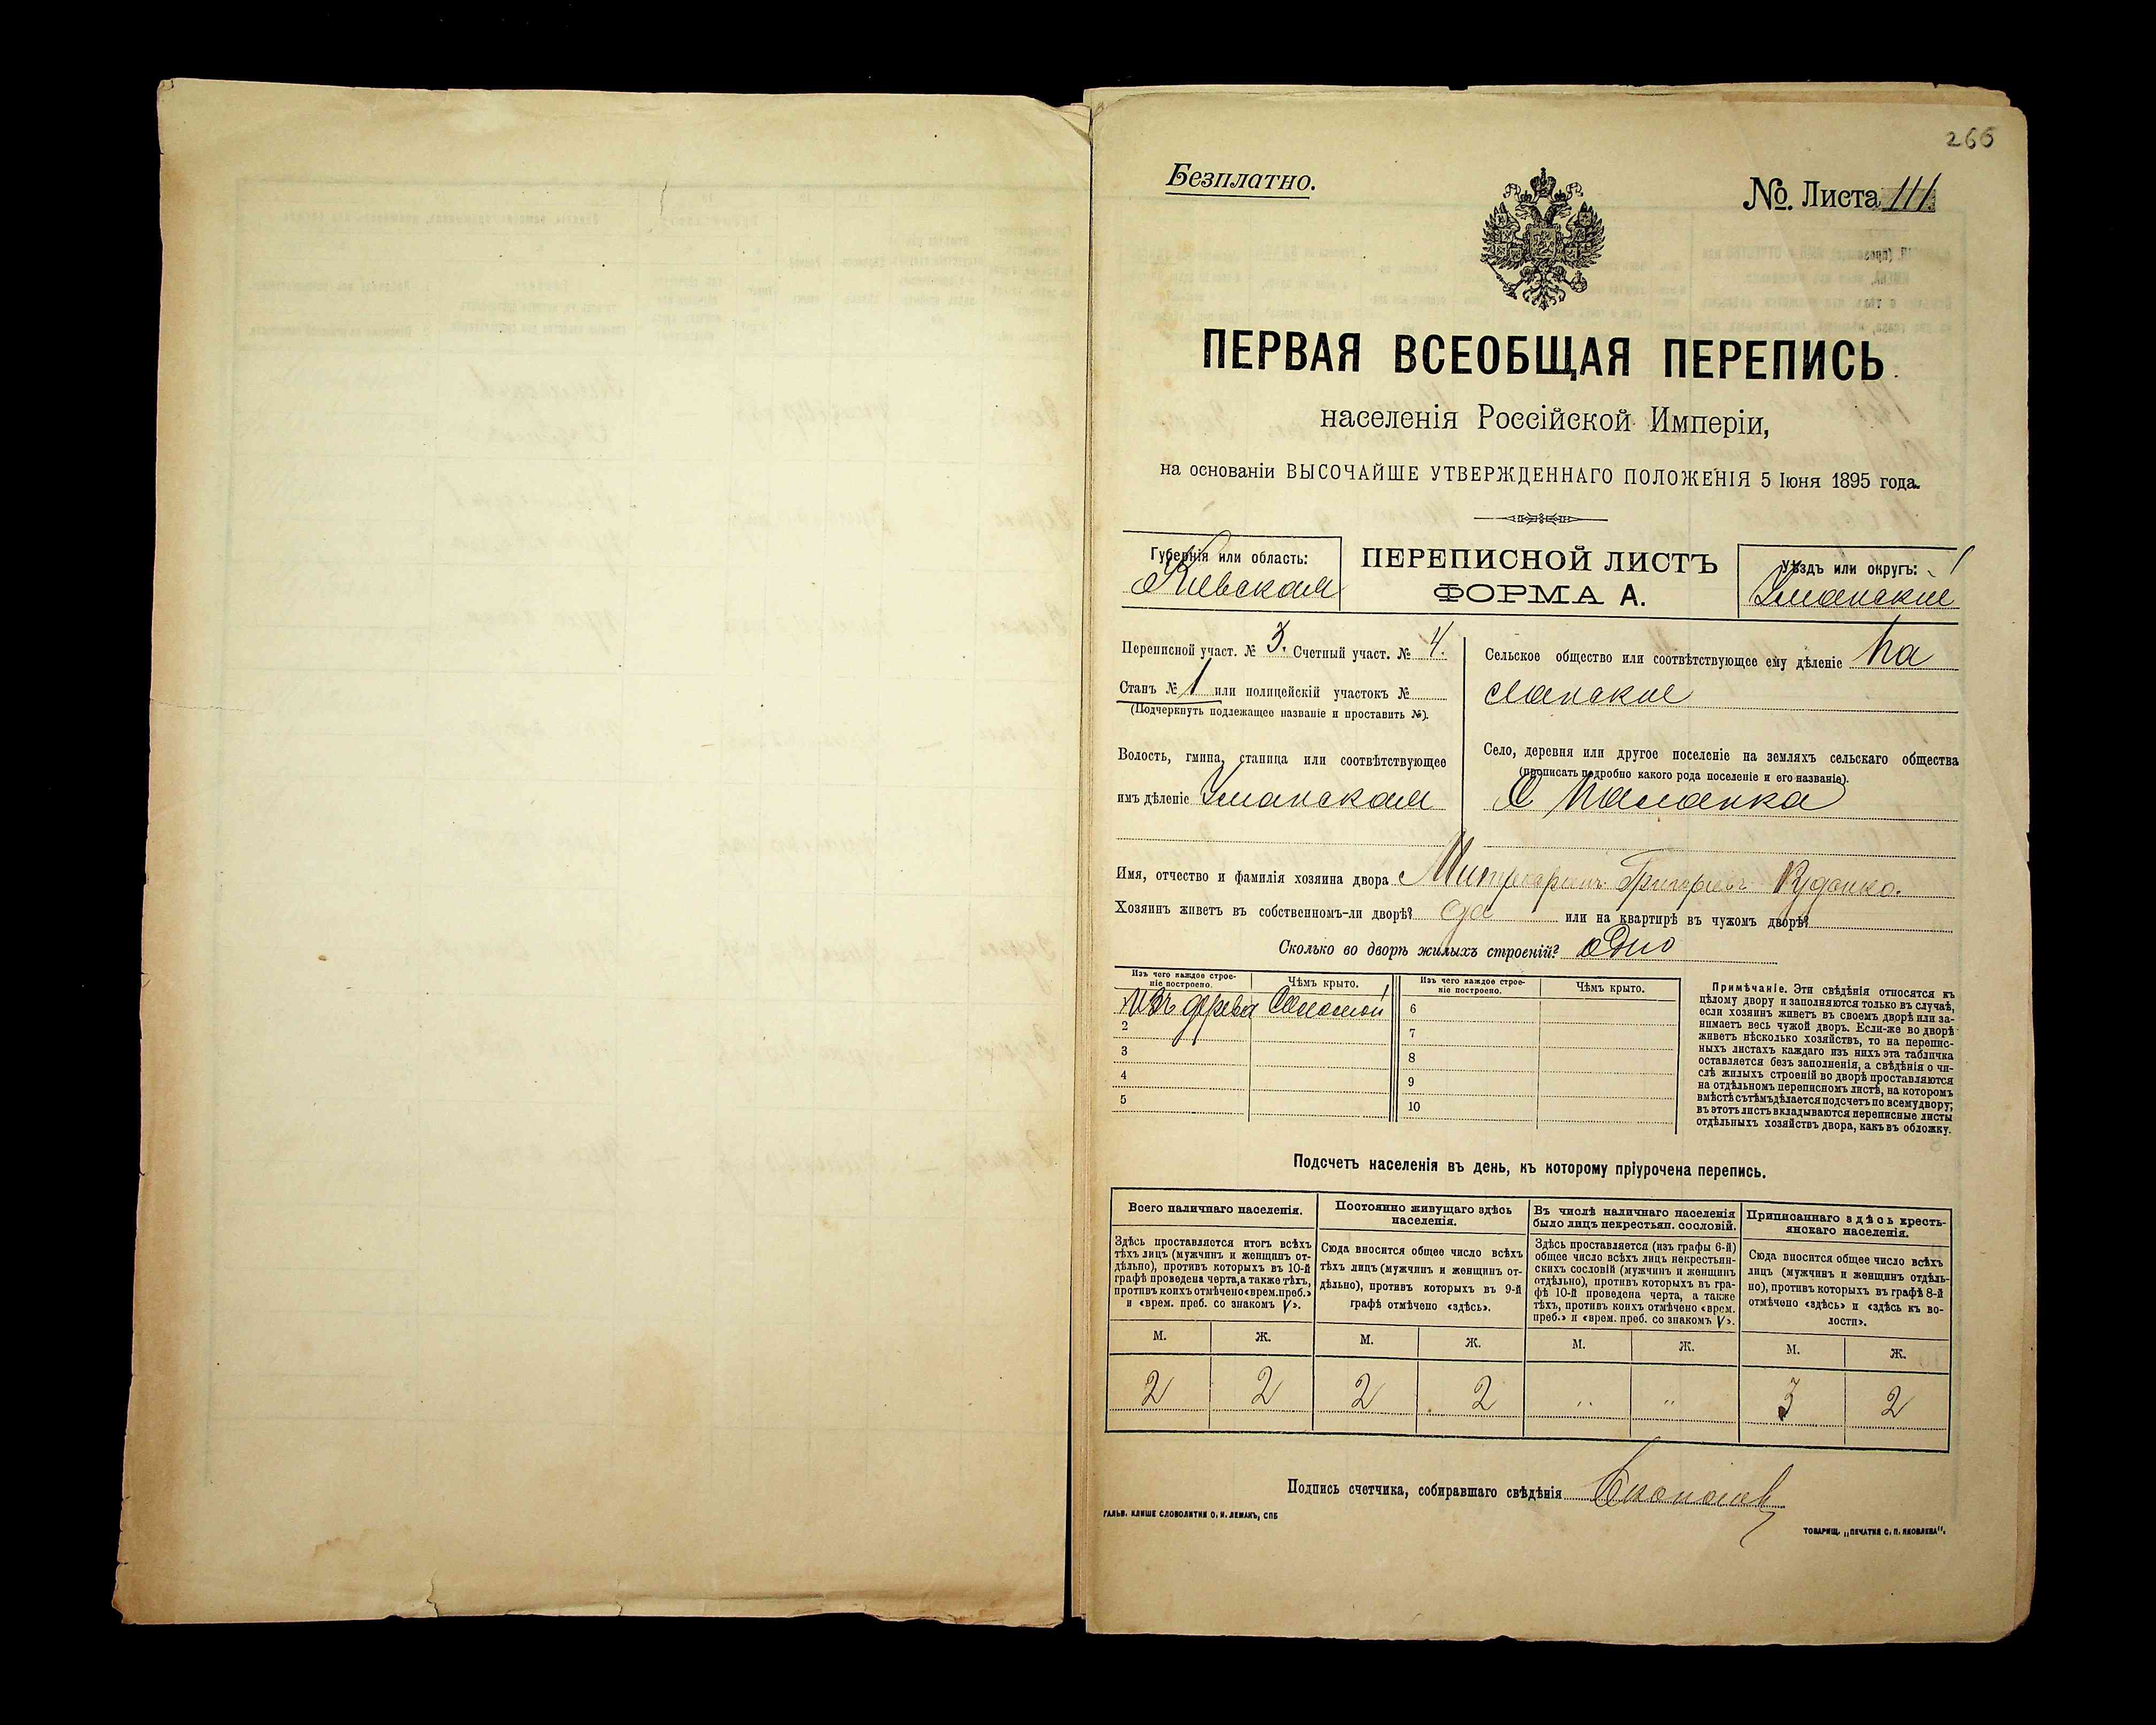 266
Безплатно.
№. Листа 111
ПЕРВАЯ ВСЕОБЩАЯ ПЕРЕПИСЬ
населенія Россійской Имперіи,
на основаніи ВЫСОЧАЙШЕ УТВЕРЖДЕННАГО ПОЛОЖЕНІЯ 5 Іюня 1895 года.
Губернія или область:
Кіевская
ПЕРЕПИСНОЙ ЛИСТЪ
ФОРМА А.
Уѣздъ или округъ:
Уманскій
Переписной участ. № 3. Счетный участ. № 4.
Станъ № 1 или полицейскій участокъ №
(Подчеркнуть подлежащее названіе и проставить №).
Волость, гмина, станица или соотвѣтствующее
имъ дѣленіе Уманская
Сельское общество или соотвѣтствующее ему дѣленіе Па
ланское
Село, деревня или другое поселеніе на земляхъ сельскаго общества
(прописать подробно какого рода поселеніе и его названіе).
С Паланка
Имя, отчество и фамилія хозяина двора Григорьевъ
Хозяинъ живетъ въ собственномъ-ли дворѣ? да или на квартирѣ въ чужомъ дворѣ?
Сколько во дворѣ жилыхъ строеній? одно
Изъ чего каждое строе-
ніе построено.
Чѣмъ крыто.
Изъ дерева Соломой
2
3
4
5
Изъ чего каждое строе-
ніе построено.
Чѣмъ крыто.
6
7
8
9
10
Примѣчаніе. Эти свѣдѣнія относятся къ
цѣлому двору и заполняются только въ случаѣ,
если хозяинъ живетъ въ своемъ дворѣ или за-
нимаетъ весь чужой дворъ. Если-же во дворѣ
живетъ нѣсколько хозяйствъ, то на перепис-
ныхъ листахъ каждаго изъ нихъ эта табличка
оставляется безъ заполненія, а свѣдѣнія о чи-
слѣ жилыхъ строеній во дворѣ проставляются
на отдѣльномъ переписномъ листѣ, на которомъ
вмѣстѣ съ тѣмъ дѣлается подсчетъ по всему двору;
въ этотъ листъ вкладываются переписные листы
отдѣльныхъ хозяйствъ двора, какъ въ обложку.
Подсчетъ населенія въ день, къ которому пріурочена перепись.
Всего наличнаго населенія.
Здѣсь проставляется итогъ всѣхъ
тѣхъ лицъ (мужчинъ и женщинъ от-
дѣльно), противъ которыхъ въ 10-й
графѣ проведена черта, а также тѣхъ,
противъ коихъ отмѣчено «врем. преб.»
и «врем. преб. со знакомъ V».
М. Ж.
2 2
Постоянно живущаго здѣсь
населенія.
Сюда вносится общее число всѣхъ
тѣхъ лицъ (мужчинъ и женщинъ от-
дѣльно), противъ которыхъ въ 9-й
графѣ отмѣчено «здѣсь».
М. Ж.
2 2
Въ числѣ наличнаго населенія
было лицъ некрестьян. сословій.
Здѣсь проставляется (изъ графы 6-й)
общее число всѣхъ лицъ некрестьян-
скихъ сословій (мужчинъ и женщинъ
отдѣльно), противъ которыхъ въ гра-
фѣ 10-й проведена черта, а также
тѣхъ, противъ коихъ отмѣчено «врем.
преб.» и «врем. преб. со знакомъ V».
М. Ж.
" "
Приписаннаго здѣсь кресть-
янскаго населенія.
Сюда вносится общее число всѣхъ
лицъ (мужчинъ и женщинъ отдѣль-
но), противъ которыхъ въ графѣ 8-й
отмѣчено «здѣсь» и «здѣсь къ во-
лости».
М. Ж.
3 2
Подпись счетчика, собиравшаго свѣдѣнія
ГАЛЬВ. КЛИШЕ СЛОВОЛИТНИ О. И. ЛЕМАНЪ, СПБ
ТОВАРИЩ. „ПЕЧАТНЯ С. П. ЯКОВЛЕВА".